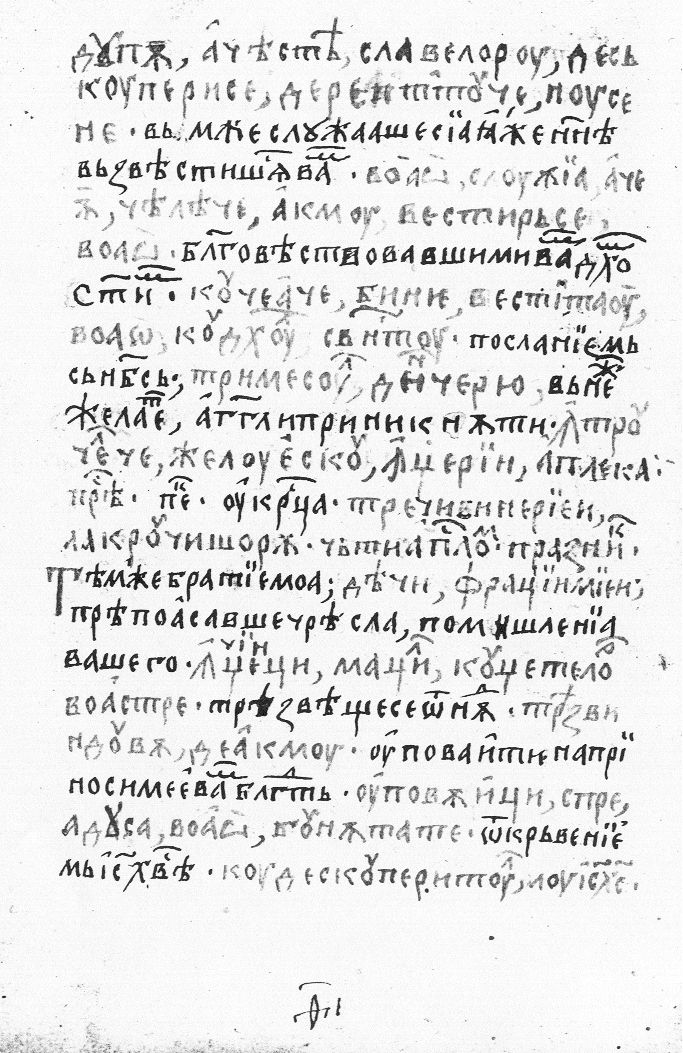 дꙋпѫ, а҆чѣстѣ, славелороу, десь
коуперисе, дереитт҃ꙋ че, ноусе
не · вьмже слꙋжаашесіа ꙗ҆же нн҃ѣ
вьзвѣстишѫ ва҃ · воаѡ҆, слоужїа, а҆че
ѣ, чѣлѣче, а҆кмоу, вестирьсе,
воаѡ҆ · бл҃говѣствовавшими ва҃ дх҃о
ст҃и · кꙋ чеа҆че, бинне, вестітаꙋ,
воаѡ, кꙋ дх҃ꙋ свн҃тоу · посланїемь
сьнб҃сь ; тримесоу, ден черю, вьнеж
желаѐ, а҆гг҃ли приникнѫти · ꙟтрꙋ
че҆че, желоуе҆скꙋ, ꙟцерїи, аплека
прѣ · пїе · оу҆кр҃ца · тречи винерїеи,
лакрꙋчишорѫ · чьтиап҃лом · празник ·
Тѣмже братїемоа; дѣчи, фрацїимїеи;
прѣпоа҆савше чрѣсла, помꙑшленїа
вашего · ꙟцечїнци, мацїи, коуцетелѡ
воастре · трѣзвѣщесеѿнѫд · трѣзви
ндꙋвѫ, деа҆кмоу · оу҆повайте напрї
носимеѐ ва҃ блг҃ть · оу҆повѫйци, спре,
адꙋса, воаѡ҆, бꙋнѫтате · ѿкрьвенїе҆
мьіс҃ х҃вѣ · коудескꙋперитоу, лоуіс҃ х҃с ·